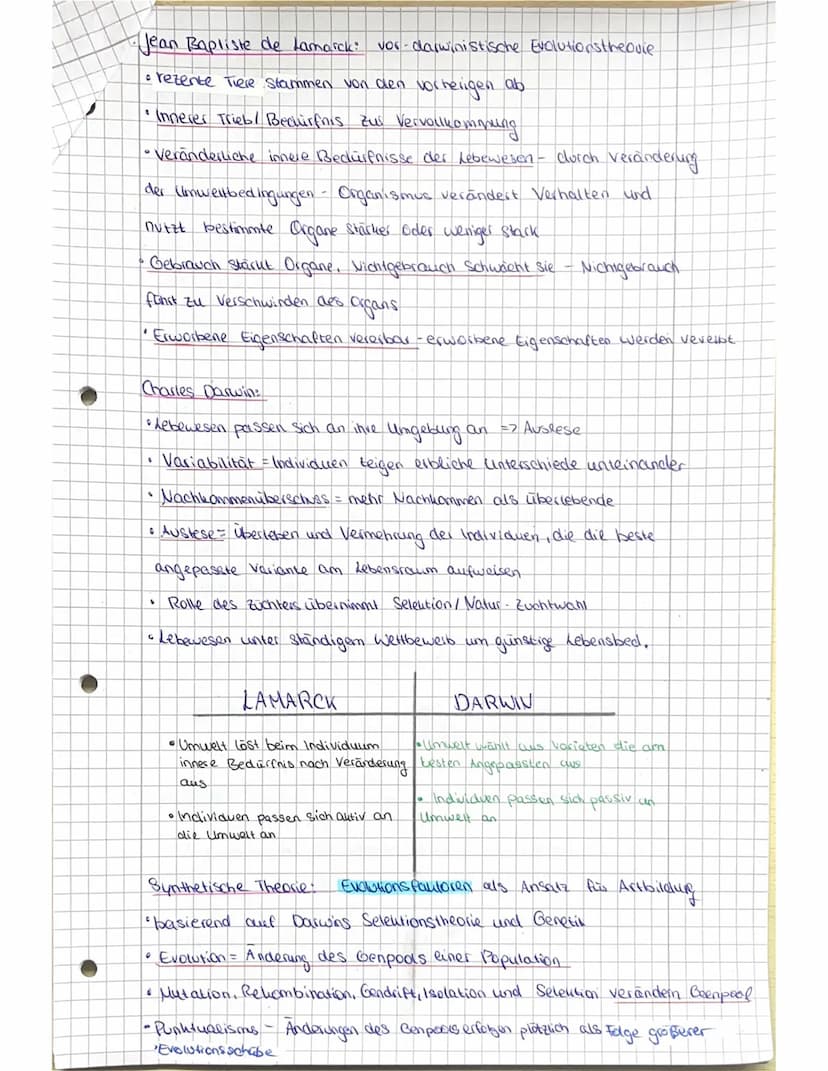 Jean Baptiste de Lamarck: vor-darwinistische Evolutionstheorie
• rezente Tiere stammen von den vorherigen ab
• Innerer Trieb/Bedürfnis zur Vervollkommnung
• veränderliche innere Bedürfnisse der Lebewesen - durch Veränderung
der Umweltbedingungen - Organismus verändert Verhalten und
nutzt bestimmte Organe stärker oder weniger stark
• Gebrauch stärkt Organe, Nichtgebrauch schwächt sie - Nichtgebrauch
führt zu Verschwinden des Organs
• Erworbene Eigenschaften vererbar - erworbene Eigenschaften werden vererbt
Charles Darwin:
• Lebewesen passen sich an ihre Umgebung an => Auslese
• Variabilität = Individuen zeigen erbliche Unterschiede untereinander
• Nachkommenüberschuss = mehr Nachkommen als überlebende
• Auslese = Überleben und Vermehrung der Individuen, die die beste
angepasste Variante am Lebensraum aufweisen
• Rolle des Züchters übernimmt Selektion/Natur - Zuchtwahl
• Lebewesen unter ständigem Wettbewerb um günstige Lebensbed.
LAMARCK DARWIN
• Umwelt löst beim Individuum
innere Bedürfnis nach Veränderung
aus
• Individuen passen sich aktiv an
die Umwelt an
• Umwelt wählt aus Varieten die am
besten Angepassten aus
• Individuen passen sich passiv an
Umwelt an
Synthetische Theorie: Evolutionsfaktoren als Ansatz für Artbildung
• basierend auf Darwins Selektionstheorie und Genetik
• Evolution = Änderung des Genpools einer Population
• Mutation, Rekombination, Gendrift, Isolation und Selektion verändern Geenpool
• Punktualismus - Änderungen des Genpools erfolgen plötzlich als Folge größerer
'Evolutionsschübe